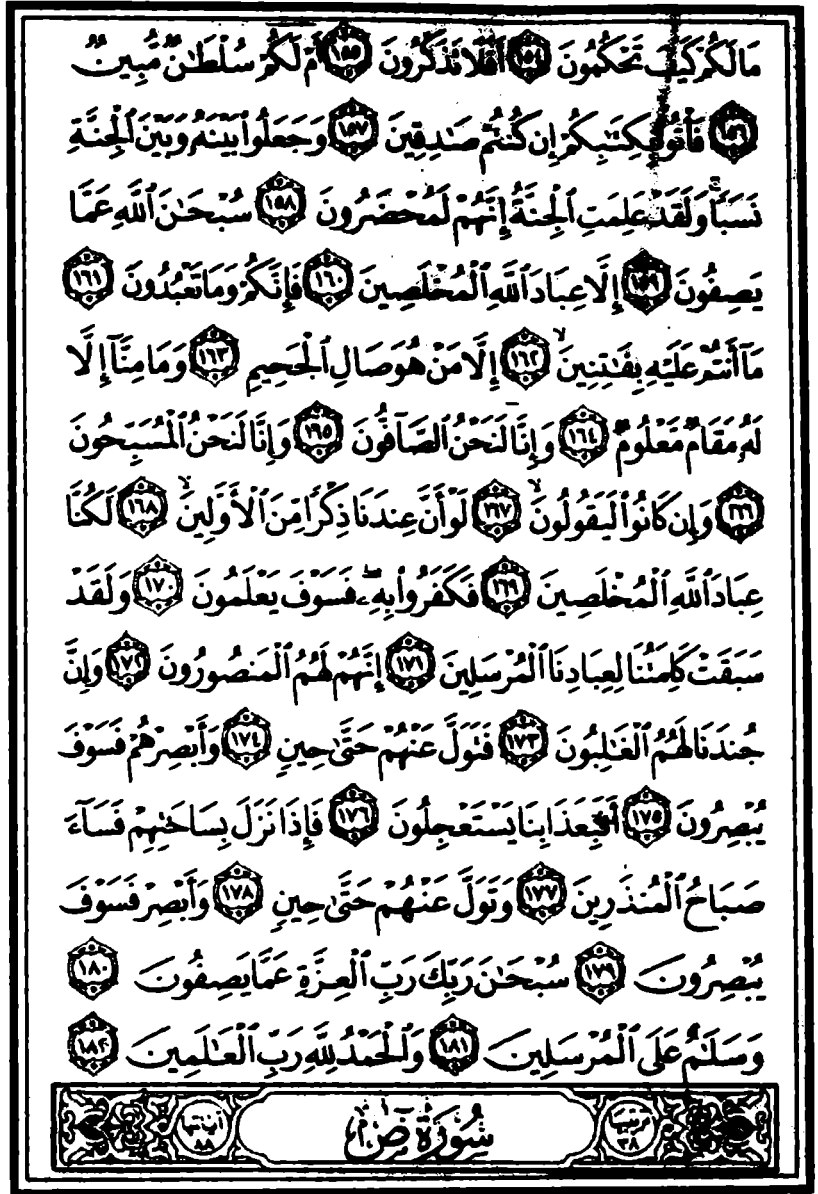 مَالَكُمْ كَيْفَ تَحْكُمُونَ ١٥٤ أَفَلَا تَذَكَّرُونَ ١٥٥ أَمْ لَكُمْ سُلْطَٰنٌ مُّبِينٌ
١٥٦ فَأْتُوا۟ بِكِتَٰبِكُمْ إِن كُنتُمْ صَٰدِقِينَ ١٥٧ وَجَعَلُوا۟ بَيْنَهُۥ وَبَيْنَ ٱلْجِنَّةِ
نَسَبًا ۚ وَلَقَدْ عَلِمَتِ ٱلْجِنَّةُ إِنَّهُمْ لَمُحْضَرُونَ ١٥٨ سُبْحَٰنَ ٱللَّهِ عَمَّا
يَصِفُونَ ١٥٩ إِلَّا عِبَادَ ٱللَّهِ ٱلْمُخْلَصِينَ ١٦٠ فَإِنَّكُمْ وَمَا تَعْبُدُونَ ١٦١
مَآ أَنتُمْ عَلَيْهِ بِفَٰتِنِينَ ١٦٢ إِلَّا مَنْ هُوَ صَالِ ٱلْجَحِيمِ ١٦٣ وَمَا مِنَّآ إِلَّا
لَهُۥ مَقَامٌ مَّعْلُومٌ ١٦٤ وَإِنَّا لَنَحْنُ ٱلصَّآفُّونَ ١٦٥ وَإِنَّا لَنَحْنُ ٱلْمُسَبِّحُونَ
١٦٦ وَإِن كَانُوا۟ لَيَقُولُونَ ١٦٧ لَوْ أَنَّ عِندَنَا ذِكْرًا مِّنَ ٱلْأَوَّلِينَ ١٦٨ لَكُنَّا
عِبَادَ ٱللَّهِ ٱلْمُخْلَصِينَ ١٦٩ فَكَفَرُوا۟ بِهِۦ ۖ فَسَوْفَ يَعْلَمُونَ ١٧٠ وَلَقَدْ
سَبَقَتْ كَلِمَتُنَا لِعِبَادِنَا ٱلْمُرْسَلِينَ ١٧١ إِنَّهُمْ لَهُمُ ٱلْمَنصُورُونَ ١٧٢ وَإِنَّ
جُندَنَا لَهُمُ ٱلْغَٰلِبُونَ ١٧٣ فَتَوَلَّ عَنْهُمْ حَتَّىٰ حِينٍ ١٧٤ وَأَبْصِرْهُمْ فَسَوْفَ
يُبْصِرُونَ ١٧٥ أَفَبِعَذَابِنَا يَسْتَعْجِلُونَ ١٧٦ فَإِذَا نَزَلَ بِسَاحَتِهِمْ فَسَآءَ
صَبَاحُ ٱلْمُنذَرِينَ ١٧٧ وَتَوَلَّ عَنْهُمْ حَتَّىٰ حِينٍ ١٧٨ وَأَبْصِرْ فَسَوْفَ
يُبْصِرُونَ ١٧٩ سُبْحَٰنَ رَبِّكَ رَبِّ ٱلْعِزَّةِ عَمَّا يَصِفُونَ ١٨٠
وَسَلَٰمٌ عَلَى ٱلْمُرْسَلِينَ ١٨١ وَٱلْحَمْدُ لِلَّهِ رَبِّ ٱلْعَٰلَمِينَ ١٨٢
ترتيبها ٣٨ سُورَةُ صٓ آياتها ٨٨